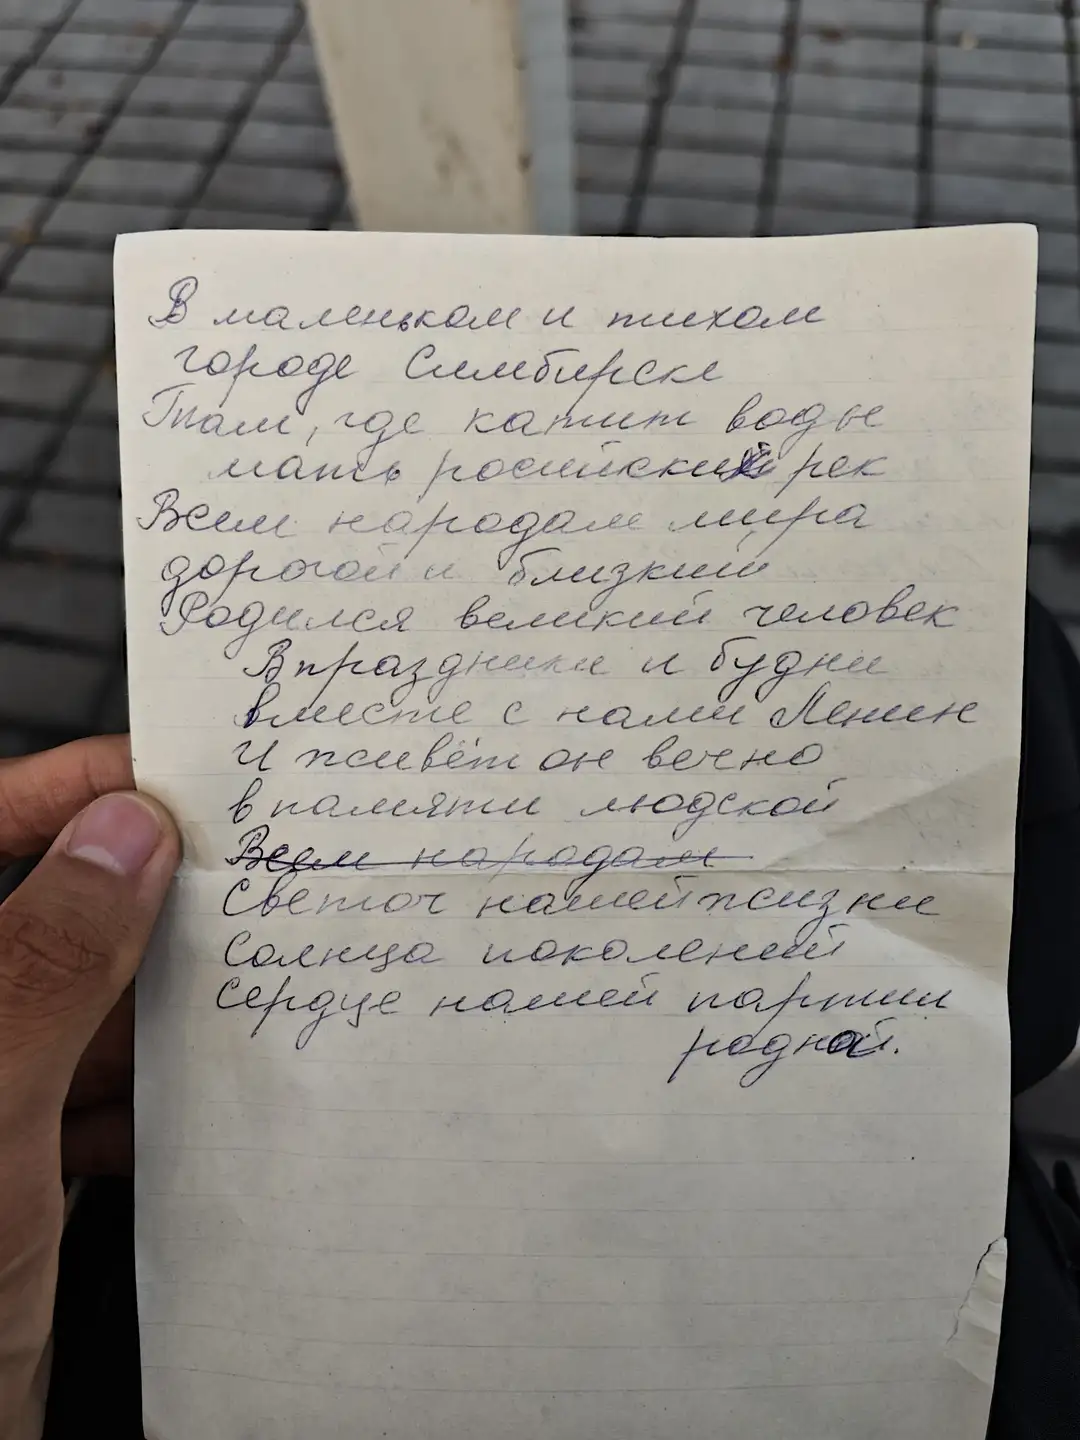 В маленьком и тихом
городе Симбирске
Там, где катит воды
мать росийских рек
Всем народам мира
дорогой и близкий
Родился великий человек
В праздники и будни
вместе с нами Ленин
И живёт он вечно
в памяти людской
Всем народам
Светоч нашей жизни
Солнца поколений
Сердце нашей партии
родной.